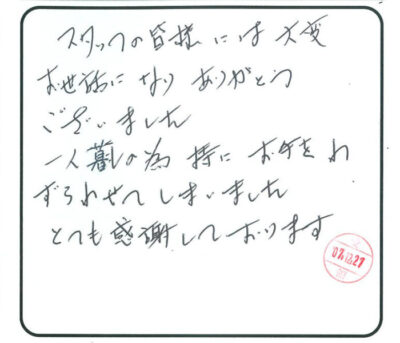 スタッフの皆様には大変
お世話になりありがとう
ございました
一人暮しの為 特にお手をわ
ずらわせてしまいました
とても感謝しております
07.12.27